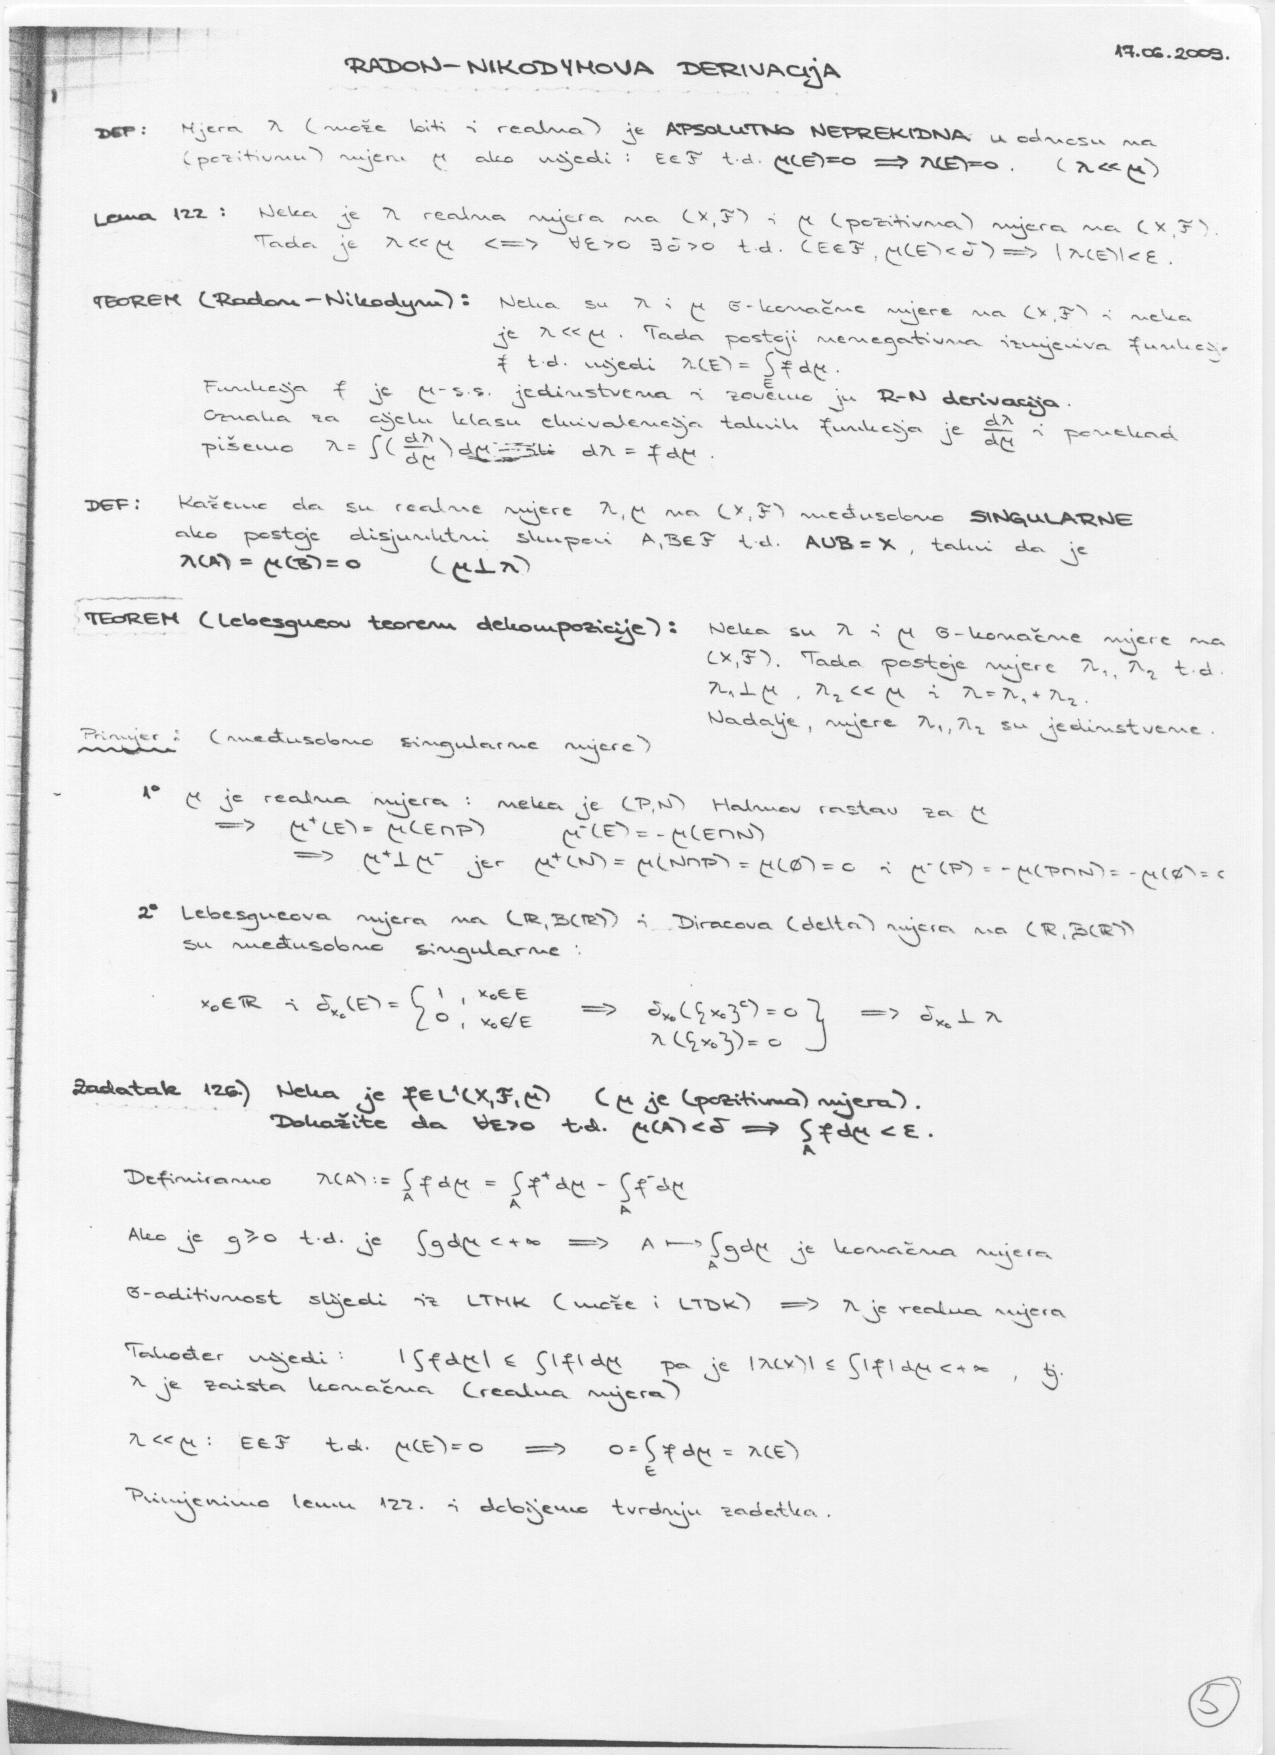 17.06.2009.
RADON-NIKODYMOVA DERIVACIJA
DEF: Mjera λ (može biti i realna) je APSOLUTNO NEPREKIDNA u odnosu na
(pozitivnu) mjeru μ ako vrijedi: E∈F t.d. μ(E)=0 ⟹ λ(E)=0. (λ<<μ)
Lema 122: Neka je λ realna mjera na (X,F) i μ (pozitivna) mjera na (X,F).
Tada je λ<<μ <=> ∀ε>0 ∃δ>0 t.d. (E∈F, μ(E)<δ) ⟹ |λ(E)|<ε.
TEOREM (Radon-Nikodym): Neka su λ i μ σ-konačne mjere na (X,F) i neka
je λ<<μ. Tada postoji nenegativna izmjeriva funkcij
f t.d. vrijedi λ(E) = ∫_E f dμ.
Funkcija f je μ-s.s. jedinstvena i zovemo ju R-N derivacija.
Oznaka za cijelu klasu ekvivalencija takvih funkcija je dλ/dμ i ponekad
pišemo λ = ∫(dλ/dμ)dμ dλ = f dμ.
DEF: Kažemo da su realne mjere λ,μ na (X,F) međusobno SINGULARNE
ako postoje disjunktni skupovi A,B∈F t.d. A∪B = X, takvi da je
λ(A) = μ(B) = 0 (μ⊥λ)
TEOREM (Lebesgueov teorem dekompozicije): Neka su λ i μ σ-konačne mjere na
(X,F). Tada postoje mjere λ₁, λ₂ t.d.
λ₁⊥μ, λ₂<<μ i λ=λ₁+λ₂.
Nadalje, mjere λ₁,λ₂ su jedinstvene.
Primjer: (međusobno singularne mjere)
1° μ je realna mjera: neka je (P,N) Hahnov rastav za μ
⟹ μ⁺(E) = μ(E∩P) μ⁻(E) = -μ(E∩N)
⟹ μ⁺⊥μ⁻ jer μ⁺(N) = μ(N∩P) = μ(∅) = 0 i μ⁻(P) = -μ(P∩N) = -μ(∅) = 0
2° Lebesgueova mjera na (ℝ,B(ℝ)) i Diracova (delta) mjera na (ℝ,B(ℝ))
su međusobno singularne:
x₀∈ℝ i δ_{x₀}(E) = { 1, x₀∈E ⟹ δ_{x₀}({x₀}^c) = 0 } ⟹ δ_{x₀}⊥λ
0, x₀∉E λ({x₀}) = 0
Zadatak 126.) Neka je f∈L¹(X,F,μ) (μ je (pozitivna) mjera).
Dokažite da ∀ε>0 t.d. μ(A)<δ ⟹ ∫_A f dμ < ε.
Definiramo λ(A) := ∫_A f dμ = ∫_A f⁺dμ - ∫_A f⁻dμ
Ako je g≥0 t.d. je ∫g dμ < +∞ ⟹ A ↦ ∫_A g dμ je konačna mjera
σ-aditivnost slijedi iz LTMK (može i LTDK) ⟹ λ je realna mjera
Također vrijedi: |∫f dμ| ≤ ∫|f| dμ pa je |λ(X)| ≤ ∫|f| dμ < +∞, tj.
λ je zaista konačna (realna mjera)
λ<<μ: E∈F t.d. μ(E)=0 ⟹ 0 = ∫_E f dμ = λ(E)
Primjenimo lemu 122. i dobijemo tvrdnju zadatka.
5